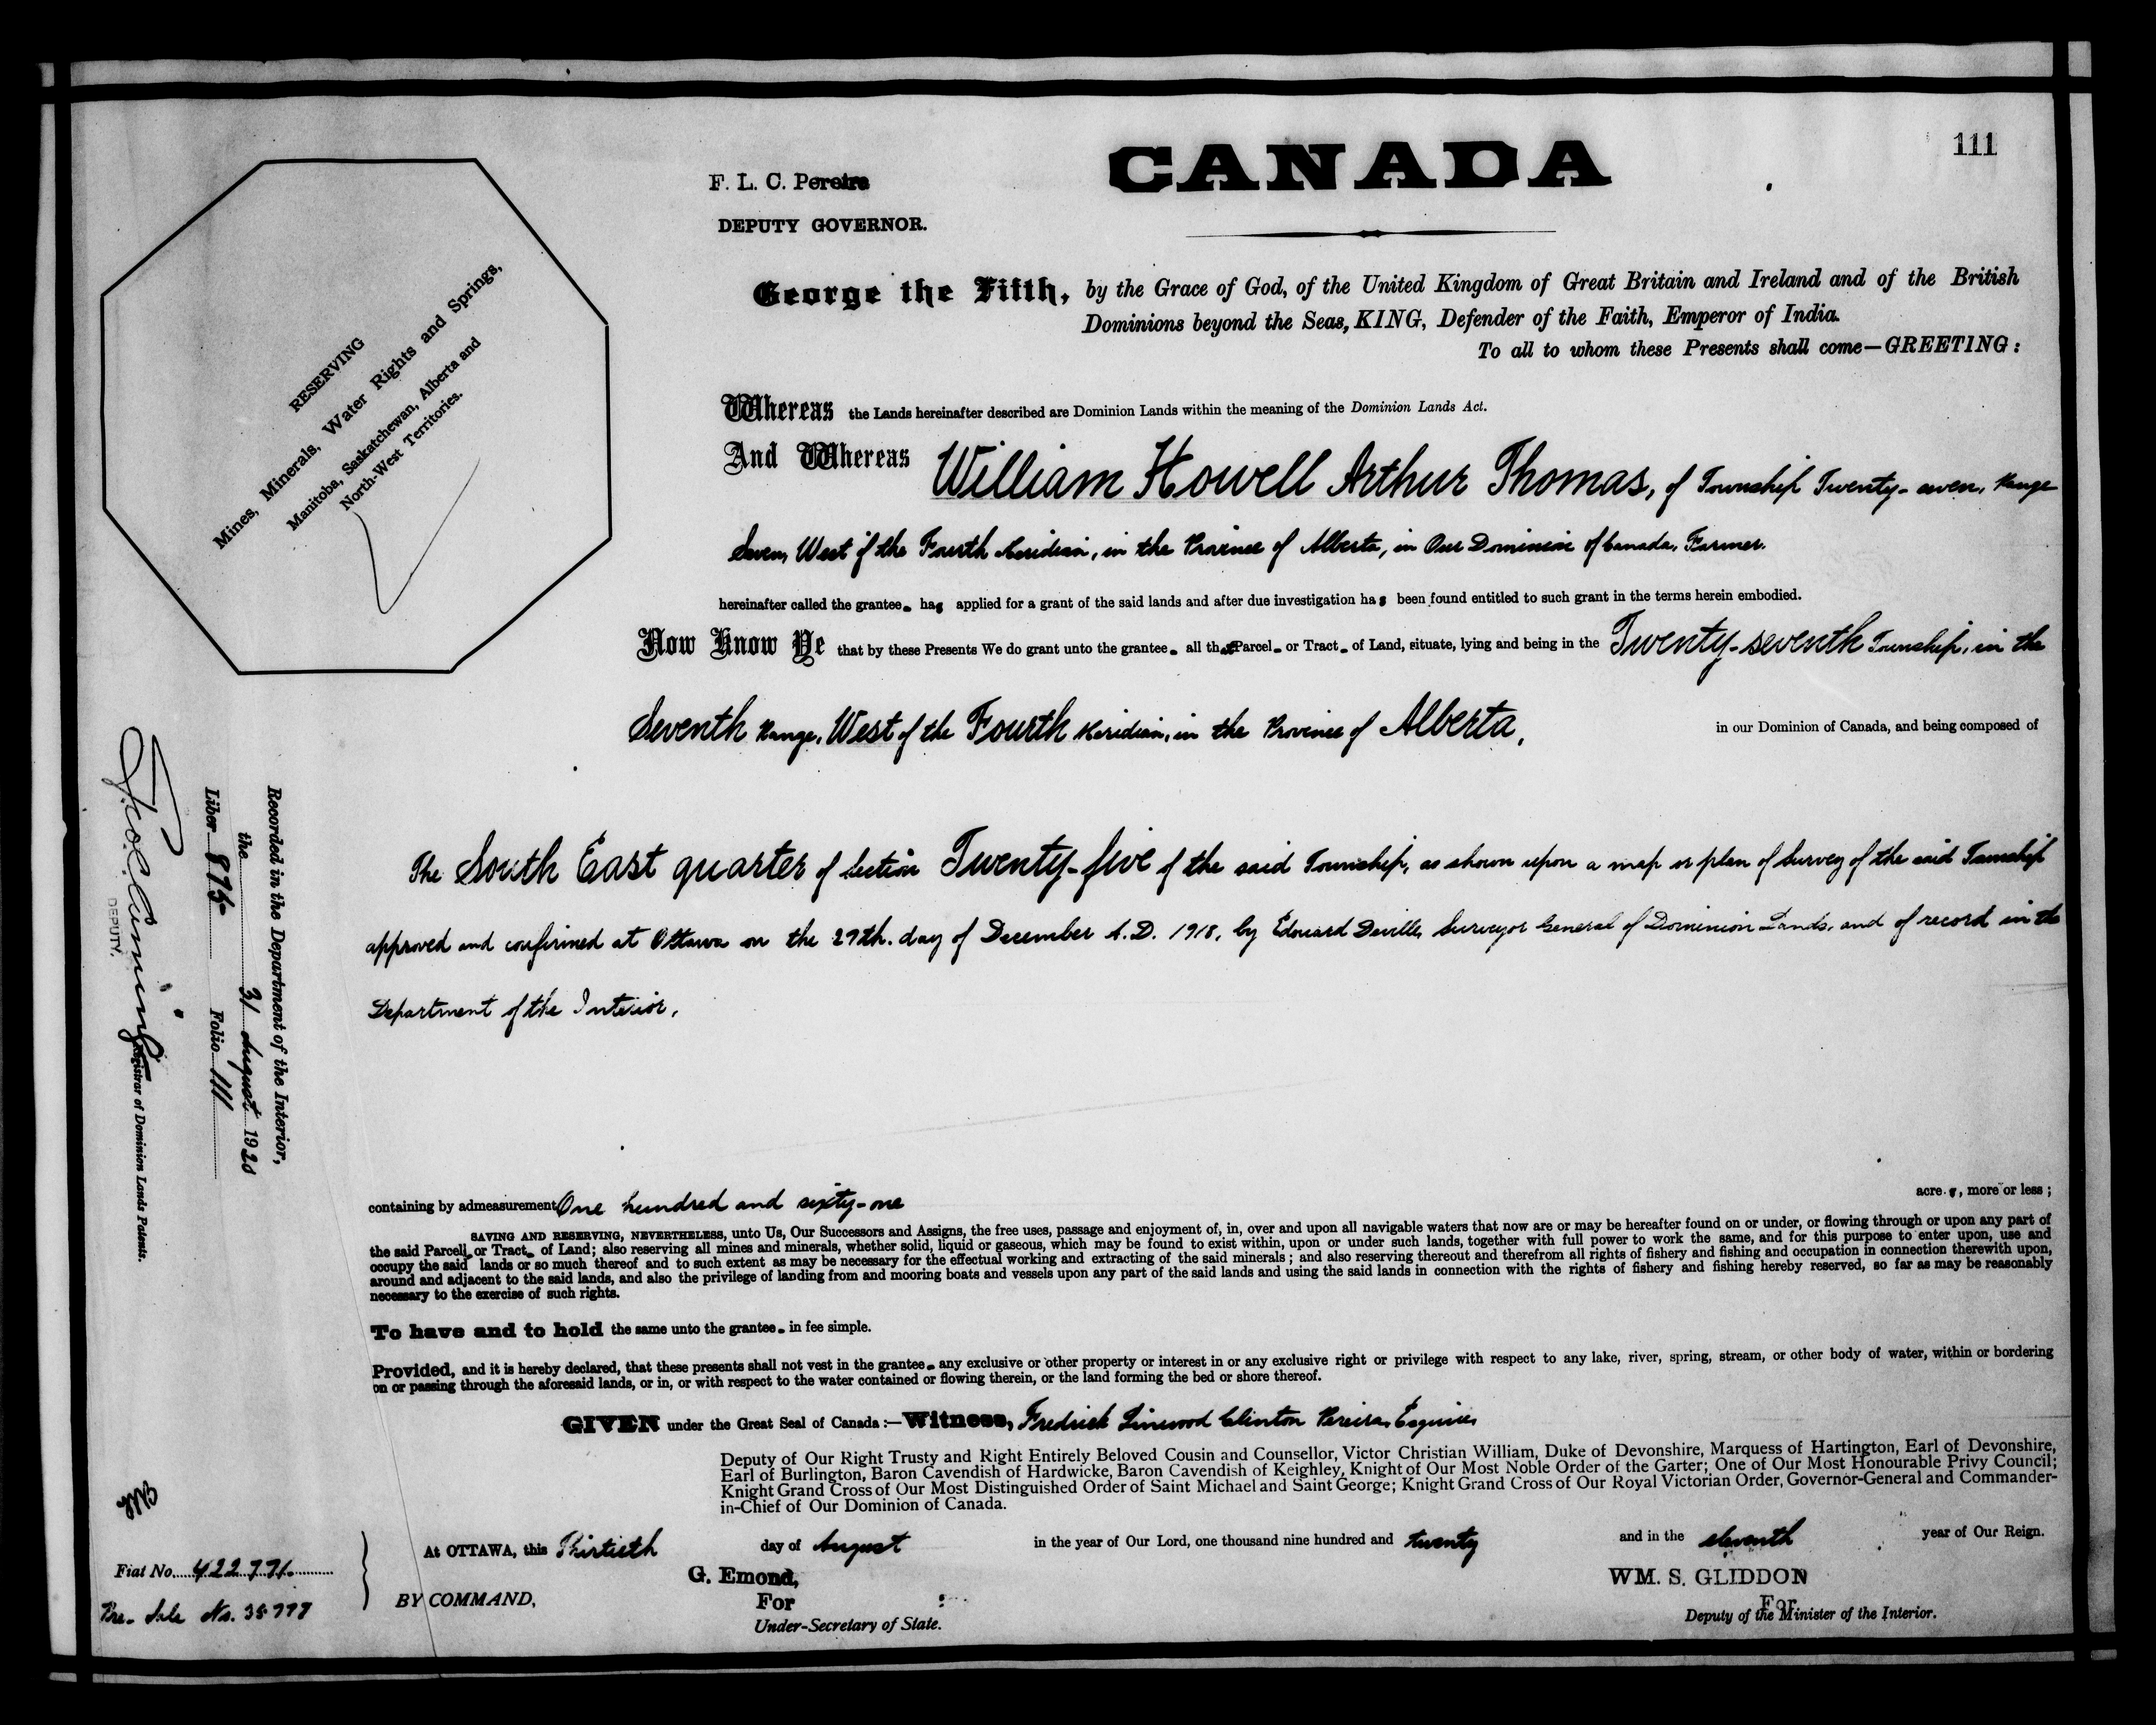 111
CANADA
F. L. C. Pereira
DEPUTY GOVERNOR.
George the Fifth, by the Grace of God, of the United Kingdom of Great Britain and Ireland and of the British
Dominions beyond the Seas, KING, Defender of the Faith, Emperor of India.
To all to whom these Presents shall come—GREETING:
RESERVING
Mines, Minerals, Water Rights and Springs,
Manitoba, Saskatchewan, Alberta and
North-West Territories.
Whereas the Lands hereinafter described are Dominion Lands within the meaning of the Dominion Lands Act.
And Whereas William Howell Arthur Thomas, of Township Twenty-seven, Range
Seven, West of the Fourth Meridian, in the Province of Alberta, in Our Dominion of Canada, Farmer.
hereinafter called the grantee has applied for a grant of the said lands and after due investigation has been found entitled to such grant in the terms herein embodied.
Now Know Ye that by these Presents We do grant unto the grantee all that Parcel or Tract of Land, situate, lying and being in the Twenty-seventh Township, in the
Seventh Range, West of the Fourth Meridian, in the Province of Alberta, in our Dominion of Canada, and being composed of
The South East quarter of Section Twenty-five of the said Township, as shown upon a map or plan of Survey of the said Township
approved and confirmed at Ottawa on the 27th. day of December A.D. 1918, by Edouard Deville, Surveyor General of Dominion Lands, and of record in the
Department of the Interior,
containing by admeasurement One hundred and sixty-one acres, more or less;
SAVING AND RESERVING, NEVERTHELESS, unto Us, Our Successors and Assigns, the free uses, passage and enjoyment of, in, over and upon all navigable waters that now are or may be hereafter found on or under, or flowing through or upon any part of
the said Parcel or Tract of Land; also reserving all mines and minerals, whether solid, liquid or gaseous, which may be found to exist within, upon or under such lands, together with full power to work the same, and for this purpose to enter upon, use and
occupy the said lands or so much thereof and to such extent as may be necessary for the effectual working and extracting of the said minerals; and also reserving thereout and therefrom all rights of fishery and fishing and occupation in connection therewith upon,
around and adjacent to the said lands, and also the privilege of landing from and mooring boats and vessels upon any part of the said lands and using the said lands in connection with the rights of fishery and fishing hereby reserved, so far as may be reasonably
necessary to the exercise of such rights.
To have and to hold the same unto the grantee in fee simple.
Provided, and it is hereby declared, that these presents shall not vest in the grantee any exclusive or other property or interest in or any exclusive right or privilege with respect to any lake, river, spring, stream, or other body of water, within or bordering
on or passing through the aforesaid lands, or in, or with respect to the water contained or flowing therein, or the land forming the bed or shore thereof.
GIVEN under the Great Seal of Canada:—Witness, Fredrick Linwood Clinton Pereira, Esquire,
Deputy of Our Right Trusty and Right Entirely Beloved Cousin and Counsellor, Victor Christian William, Duke of Devonshire, Marquess of Hartington, Earl of Devonshire,
Earl of Burlington, Baron Cavendish of Hardwicke, Baron Cavendish of Keighley, Knight of Our Most Noble Order of the Garter; One of Our Most Honourable Privy Council;
Knight Grand Cross of Our Most Distinguished Order of Saint Michael and Saint George; Knight Grand Cross of Our Royal Victorian Order, Governor-General and Commander-
in-Chief of Our Dominion of Canada.
At OTTAWA, this Thirtieth day of August in the year of Our Lord, one thousand nine hundred and twenty and in the eleventh year of Our Reign.
BY COMMAND,
G. Emond,
For
Under-Secretary of State.
WM. S. GLIDDON
For
Deputy of the Minister of the Interior.
Recorded in the Department of the Interior,
the 31 August 1920
Liber 875 Folio 111
DEPUTY.
Registrar of Dominion Lands Patents.
Fiat No. 422771
Pre-Sale No. 35777